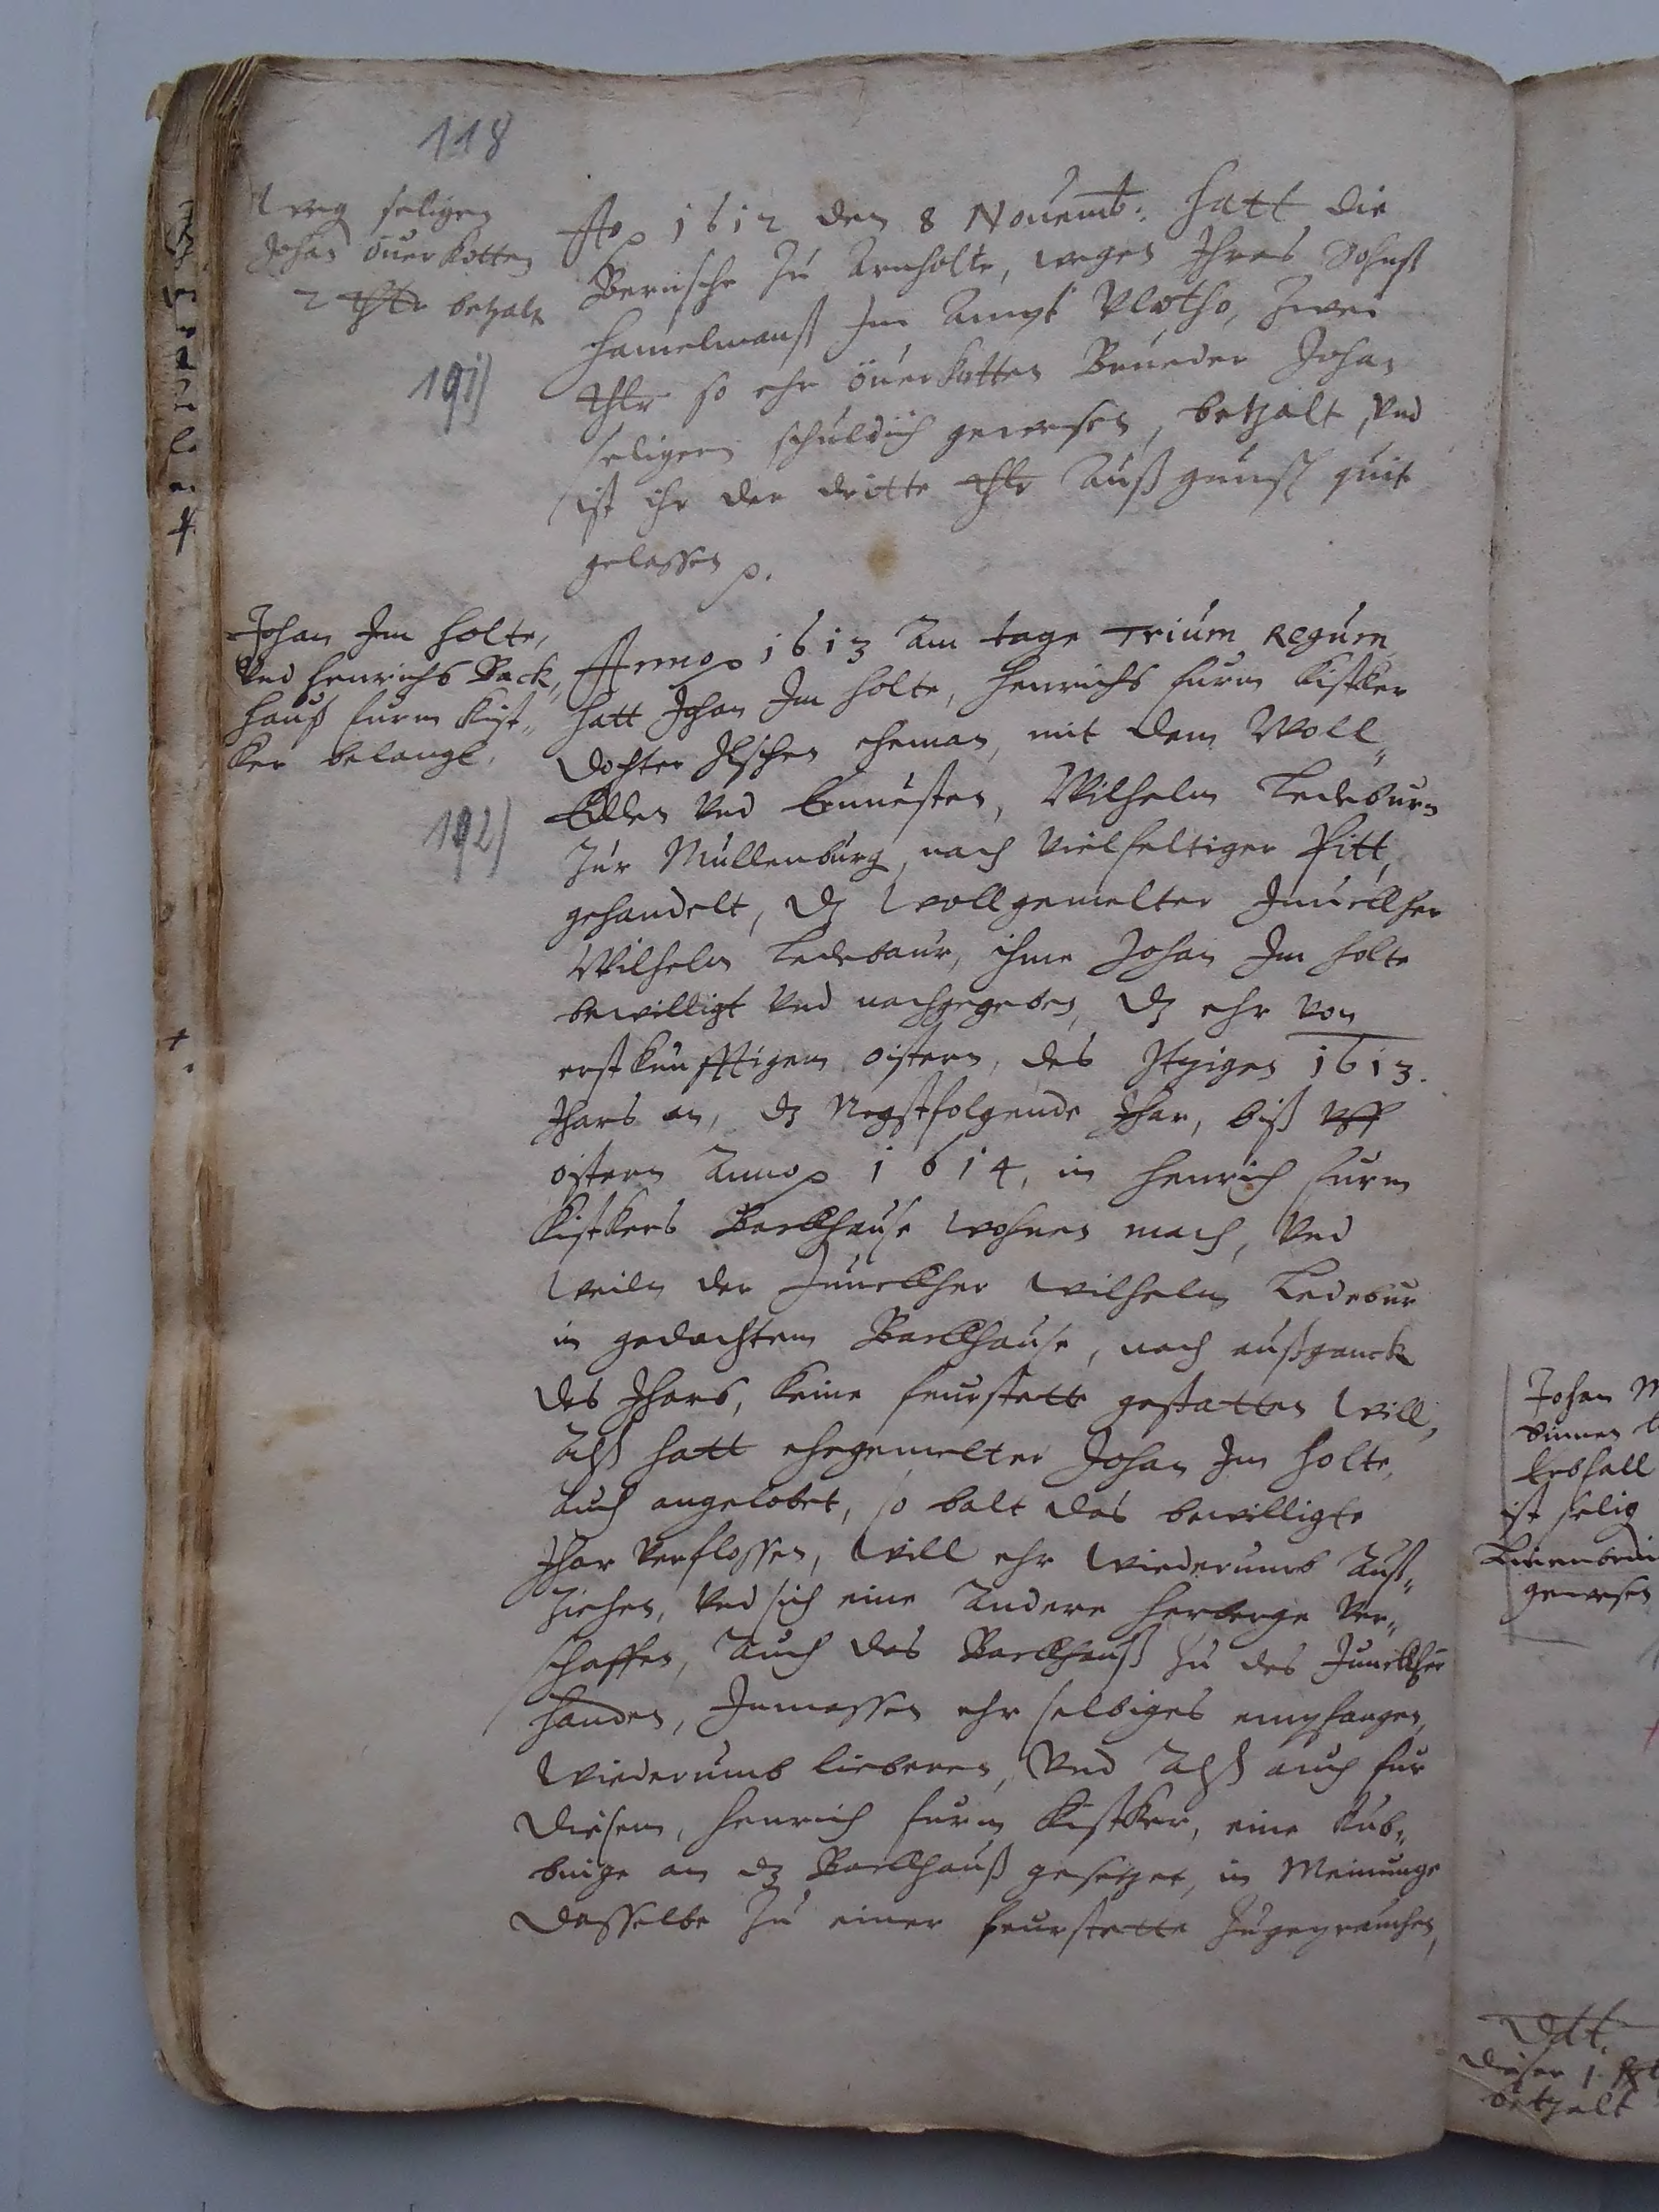 118
weg seligen
Johan öuerkotten
2 thlr betzalt
191)
Ao 1612 den 8 Nouemb: hatt die
Bernsche zu Arnholte, wegen Ihres Sohnß
Hamelmanß Im Ampt Vlotho, zwei
thlr so ehr öuerkotten Brueder Johan
seligern schuldich gewesen, betzalt, Vnd
ist ihr der dritte thlr Auß gunst quit
gelassen p.
Johan Im Holte,
Vnd Henrichs Back,,
hauß furm Kist,,
ker belangt.
192)
Anno 1613 Am tage Trium Regum
hatt Johan Im Holte, Henrichs furm Kistker
Dochter Ilschen eheman, mit dem Woll,,
Edlen Vnd Ernuesten, Wilhelm Ledeburn
Zur Mullenburg, nach Vielfeltiger Pitt,
gehandelt, dz wollgemelter Junckher
Wilhelm Ledebaur, ihme Johan Im Holte
bewilligt Vnd nachgegeben, dz ehr von
erstkunfftigem oistern, des Itzigen 1613.
Jhars an, dz Negstfolgende Jhar, biß vff
oistern Anno 1614, in Henrich furm
Kistkers Backhause wohnen mach, Vnd
weiln der Junckher Wilhelm Ledebur
in gedachtem Backhause, nach außganck
des Jhars, keine feurstette gestatten will,
Alß hatt ehegemelter Johan Im Holte,
auch angelobet, so balt das bewilligte
Jhar Verflossen, will ehr wiederumb Auß,,
ziehen, Vnd sich eine Andere herberge Ver,,
schaffen, Auch das Backhauß zu des Junckher
handen, Inmassen ehr selbiges empfangen,
wiederumb lieberen, Vnd Alß auch fur
diesem, Henrich furm Kistker, eine Kub,,
binge an dz Backhauß gesetzet, in Meinunge
dasselbe zu einer feurstette zugeprauchen,
Johan M
binnen
Erbfall
ist selig
gewesen
Dtt.
dieser 1.
betzalt